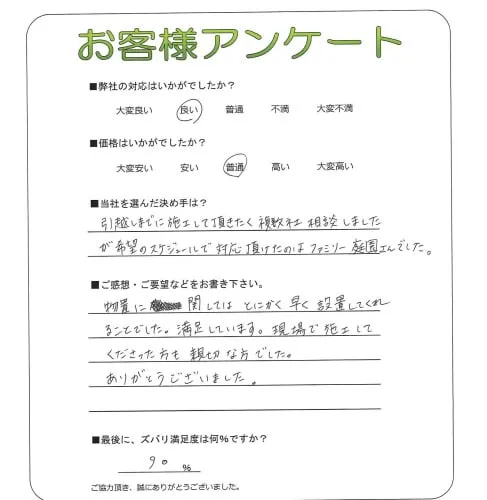 お客様アンケート
■弊社の対応はいかがでしたか？
大変良い 良い 普通 不満 大変不満
■価格はいかがでしたか？
大変安い 安い 普通 高い 大変高い
■当社を選んだ決め手は？
引越しまでに施工して頂きたく複数社相談しました
が希望のスケジュールで対応頂けたのはファミリー庭園さんでした。
■ご感想・ご要望などをお書き下さい。
物置に 関しては とにかく早く設置してくれ
ることでした。満足しています。現場で施工して
くださった方も親切な方でした。
ありがとうございました。
■最後に、ズバリ満足度は何%ですか？
90 %
ご協力頂き、誠にありがとうございました。